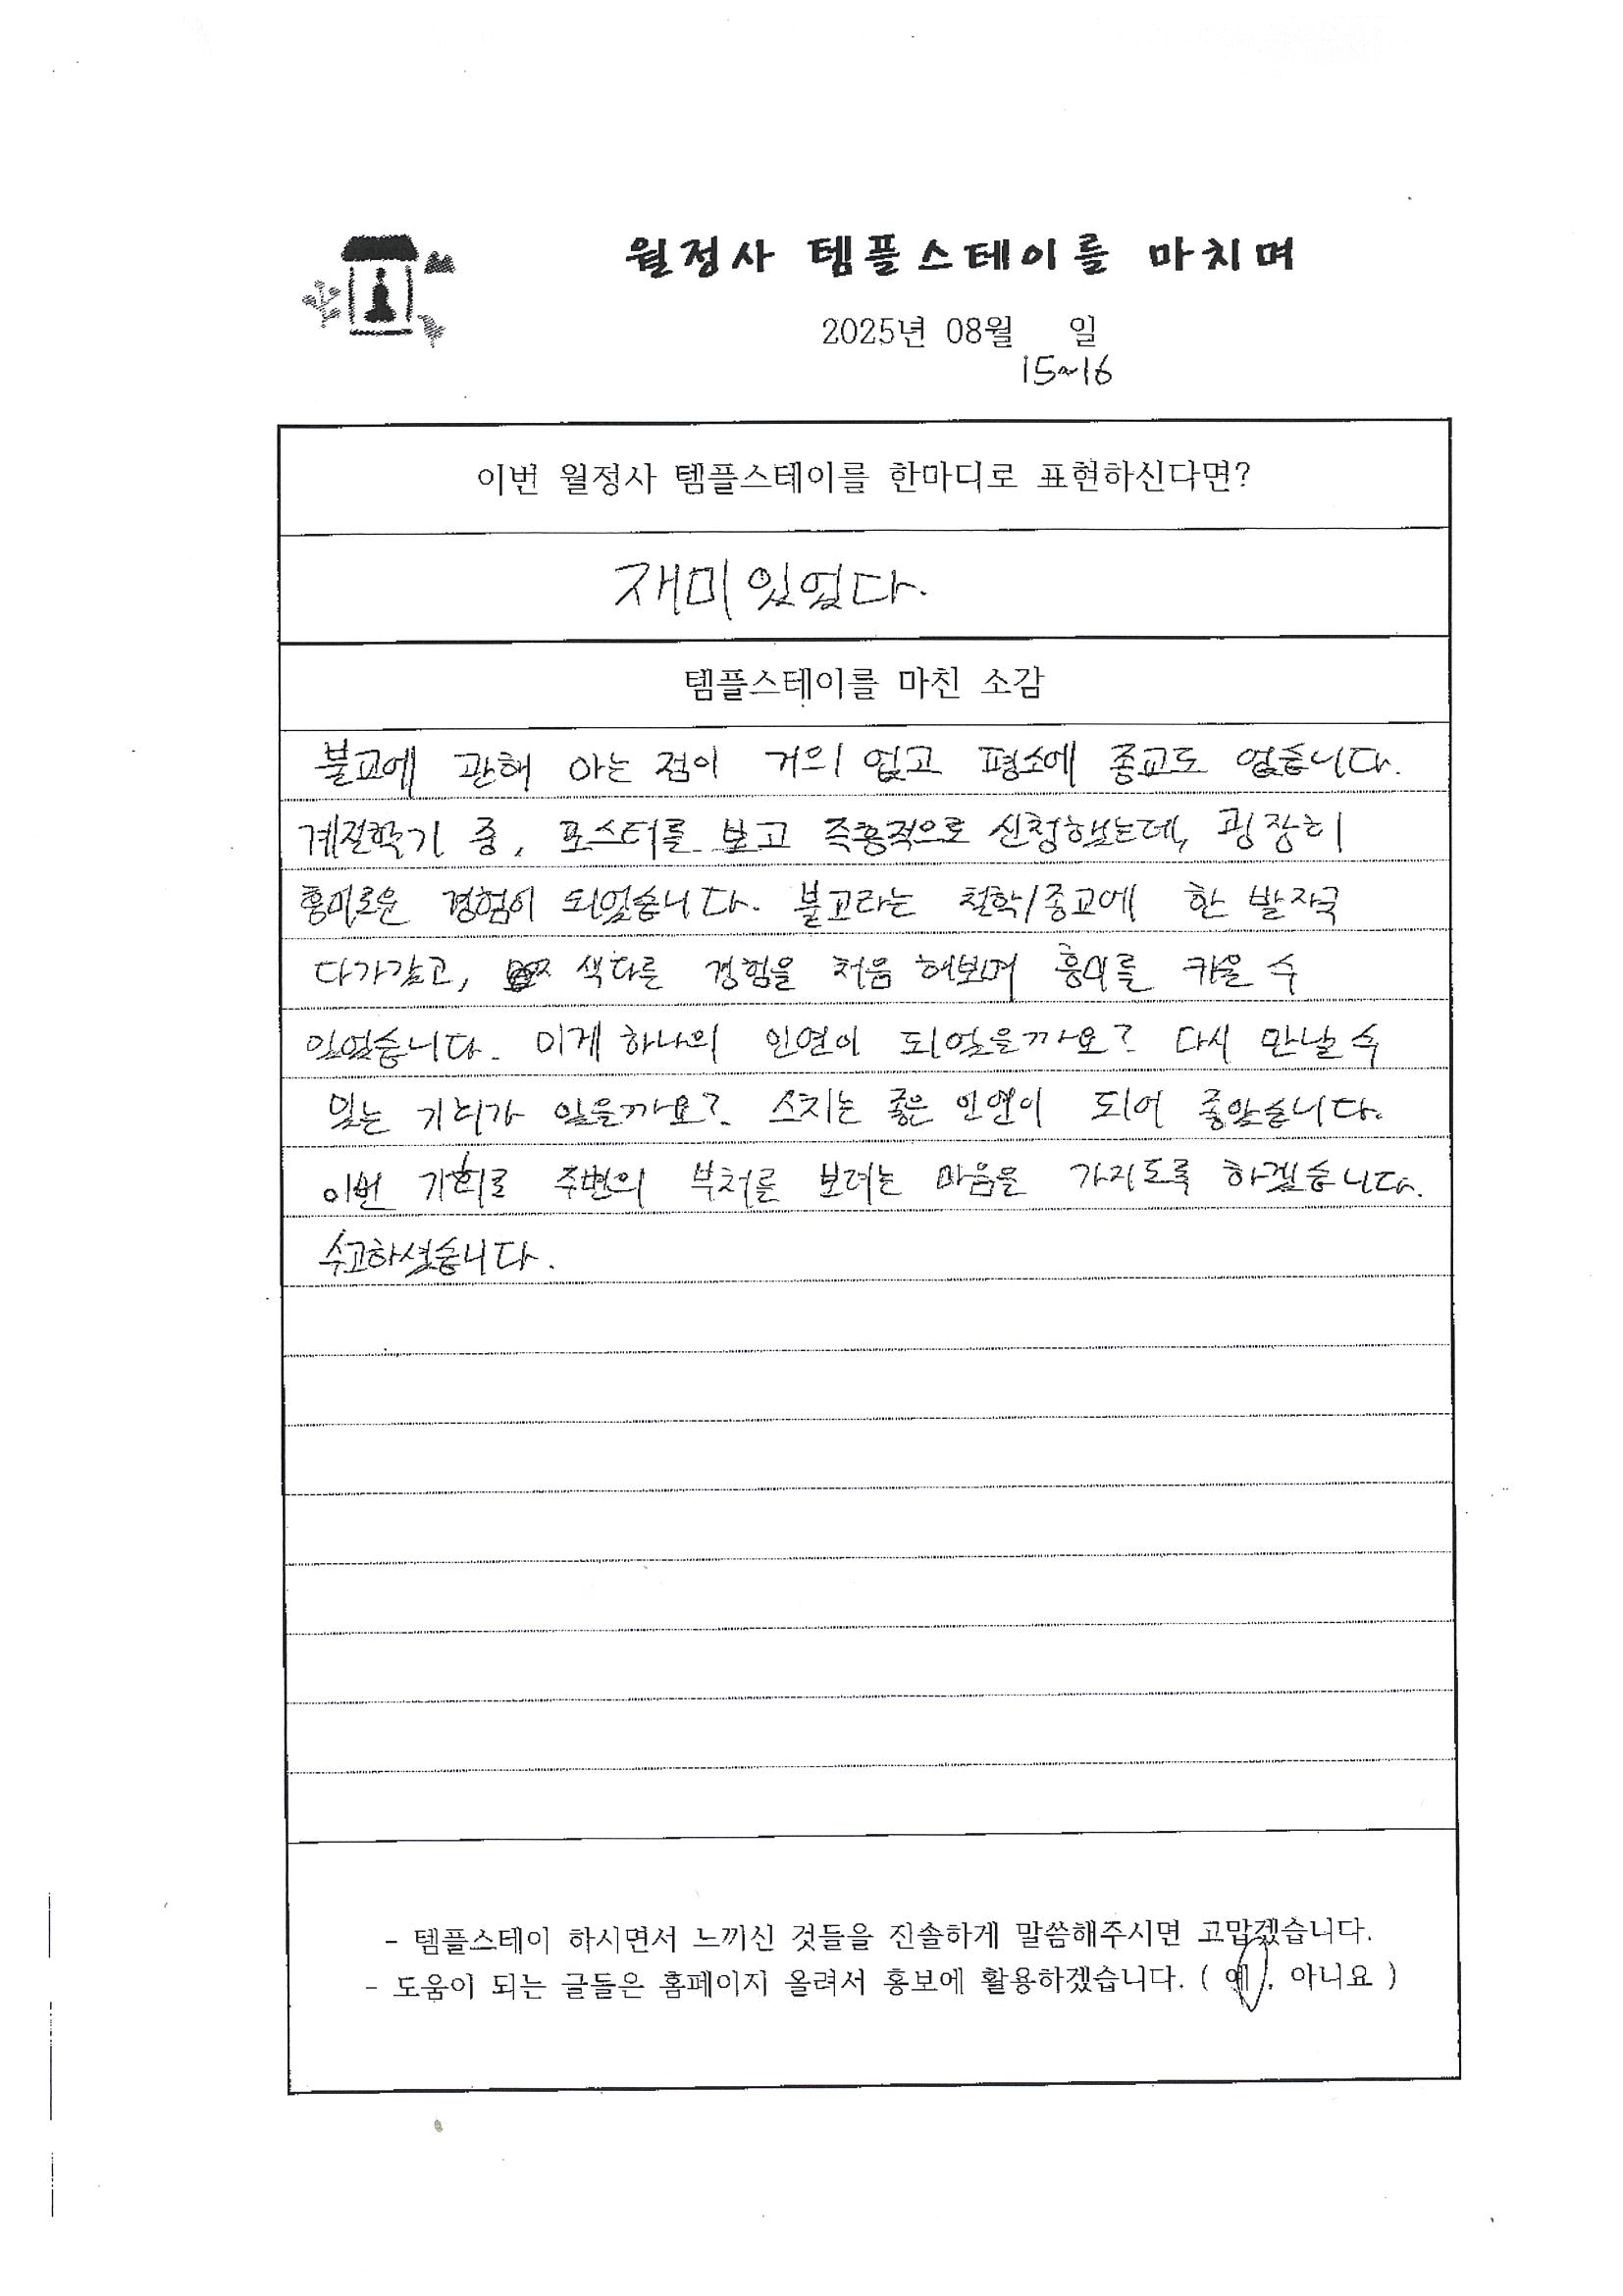 월정사 템플스테이를 마치며
2025년 08월 일
15~16
이번 월정사 템플스테이를 한마디로 표현하신다면?
재미있었다.
템플스테이를 마친 소감
불교에 관해 아는 점이 거의 없고 평소에 종교도 없습니다.
계절학기 중, 포스터를 보고 즉흥적으로 신청했는데, 굉장히
흥미로운 경험이 되었습니다. 불교라는 철학/종교에 한 발자국
다가갔고, 색다른 경험을 처음 해보며 흥미를 키울 수
있었습니다. 이게 하나의 인연이 되었을까요? 다시 만날 수
있는 기회가 있을까요? 스치는 좋은 인연이 되어 좋았습니다.
이번 기회로 주변의 부처를 보려는 마음을 가지도록 하겠습니다.
수고하셨습니다.
- 템플스테이 하시면서 느끼신 것들을 진솔하게 말씀해주시면 고맙겠습니다.
- 도움이 되는 글들은 홈페이지 올려서 홍보에 활용하겠습니다. ( 예 , 아니요 )